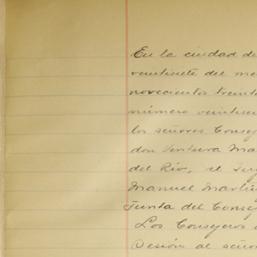 En la ciudad de
veintisiete del me
novecientos treint
número veintiun
los señores Consej
don Ventura Ma
del Río, el se
Manuel Martín
Junta del Consej
Los Consejeros
Sesión al seño